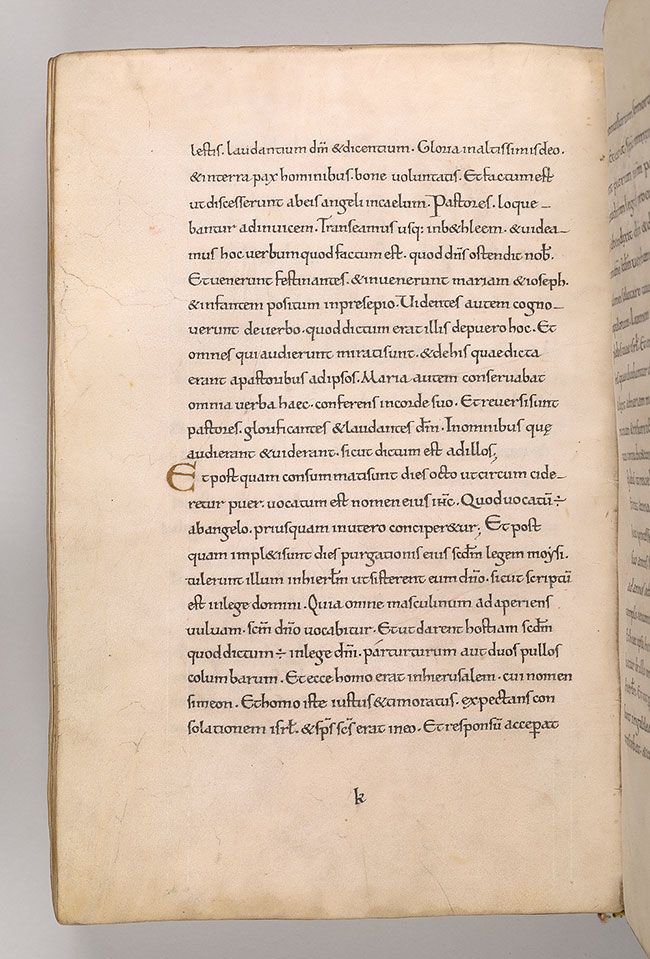 lestis. laudantium dm̄ & dicentium. Gloria inaltissimis deo.
& interra pax hominibus. bone voluntatis. Et factum est
ut discesserunt abeis angeli incaelum. Pastores. loque-
bantur adinuicem. Transeamus usq; inb&hleem. & uidea-
mus hoc uerbum quod factum est. quod dn̄s ostendit nob̄.
Et uenerunt festinantes. & inuenerunt mariam & ioseph.
& infantem positum inpresepio. Uidentes autem cogno-
uerunt deuerbo. quod dictum erat illis depuero hoc. Et
omnes qui audierunt mirati sunt. & dehis quae dicta
erant apastoribus adipsos. Maria autem conseruabat
omnia uerba haec. conferens incorde suo. Et reuersi sunt
pastores. glorificantes & laudantes dm̄. Inomnibus quę
audierant & uiderant. sicut dictum est adillos;
Et post quam consummati sunt dies octo ut circum cide-
retur puer. uocatum est nomen eius ihc̄. Quod uocatū ÷
abangelo. priusquam inutero conciper&ur; Et post
quam impl&i sunt dies purgationis eius scdm̄ legem moysi.
tulerunt illum inhierłm ut sisterent eum dn̄o. sicut scriptū
est inlege domini. Quia omne masculinum adaperiens
uuluam. scm̄ dn̄o uocabitur. Et ut darent hostiam scdm̄
quod dictum ÷ inlege dn̄i. par turturum aut duos pullos
columbarum. Et ecce homo erat inhierusalem. cui nomen
simeon. Et homo iste iustus & timoratus. expectans con
solationem isrł. & sp̄s sc̄s erat ineo. Et responsū acceperat
k